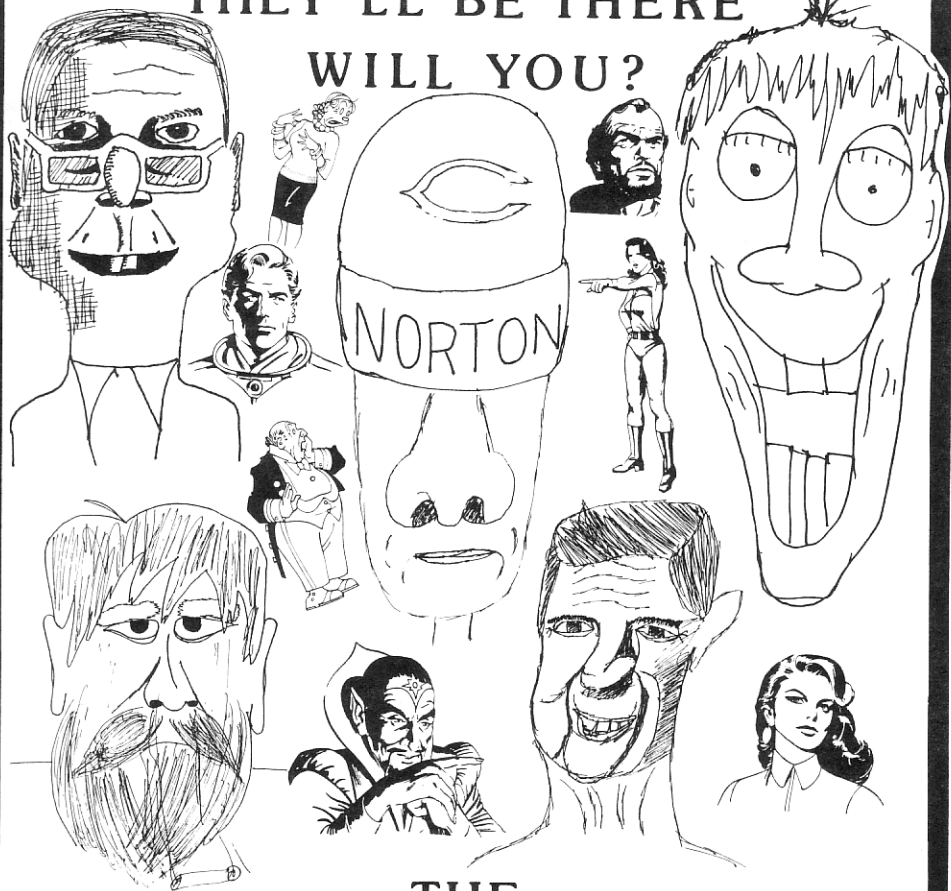 THEY'LL BE THERE
WILL YOU?
C
NORTON
THE